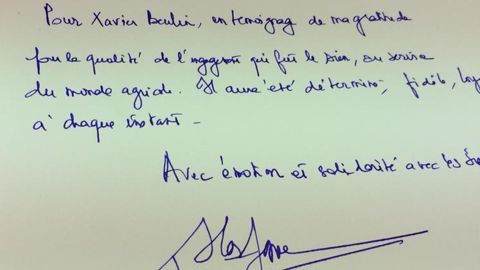 Pour Xavier Beulin, en témoignag de ma gratitude
pour la qualité de l'engagement qui fut le sien, au service
du monde agricole. Il aura été déterminé, fidèle, loy
à chaque instant -
Avec émotion et solidarité avec les